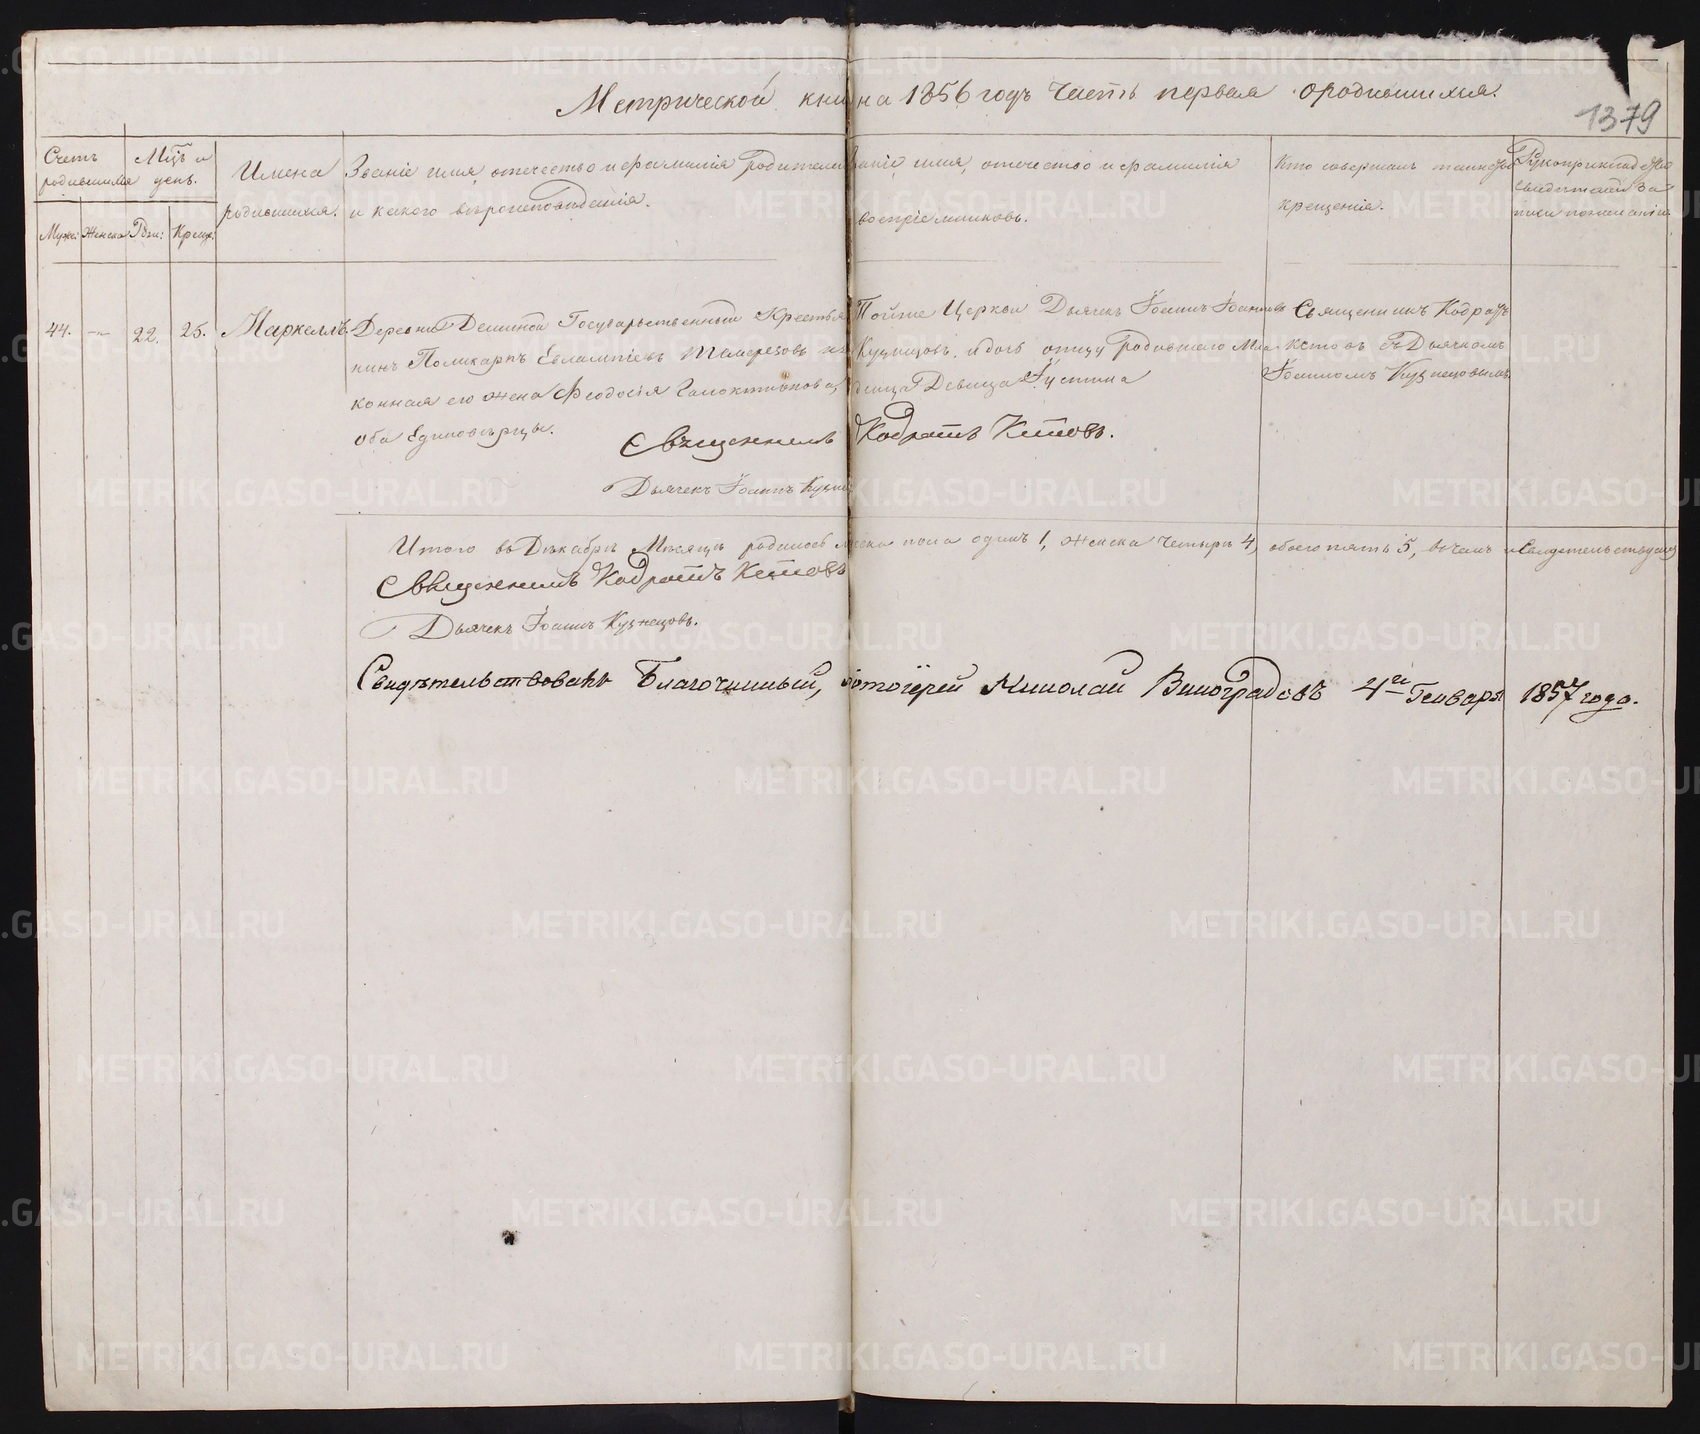 Метрической книги на 1856 годъ Часть первая о родившихся.
1379
Счетъ родившихся
Мцъ и день.
Имена родившихся.
Званіе имя, отечество и фамилія Родителей и какого вѣроисповѣданія.
Званіе имя, отечество и фамилія воспріемниковъ.
Кто совершалъ таинство крещенія.
Рукоприкладство свидетелей записи по желанію.
Муж: Женска Рож: Крещ:
44. — 22. 25. Маркеллъ
Деревни Деминой Государственный Крестья
нинъ Поликарпъ Евлампіевъ и за
конная его жена Феодосія Галактіонова,
оба Единовѣрцы.
Тойже Церкви Дьячекъ Іоаннъ Іоанновъ
Кузнецовъ, и дочь отцу Родившаго Мла
денца Девица Іустина
Священникъ Кодратъ
Кетовъ съ Дьячкомъ
Іоанномъ Кузнецовымъ.
Священникъ Кодратъ Кетовъ.
Дьячекъ Іоаннъ Кузне
Итого въ Декабрѣ Месяцѣ родилось мужска пола одинъ 1, женска четыре 4, обоего пять 5, въ чемъ и свидетельствуемъ
Священникъ Кодратъ Кетовъ
Дьячекъ Іоаннъ Кузнецовъ.
Свидѣтельствовалъ Благочинный, Протоіерей Николай Виноградовъ 4го Генваря 1857 года.
METRIKI.GASO-URAL.RU